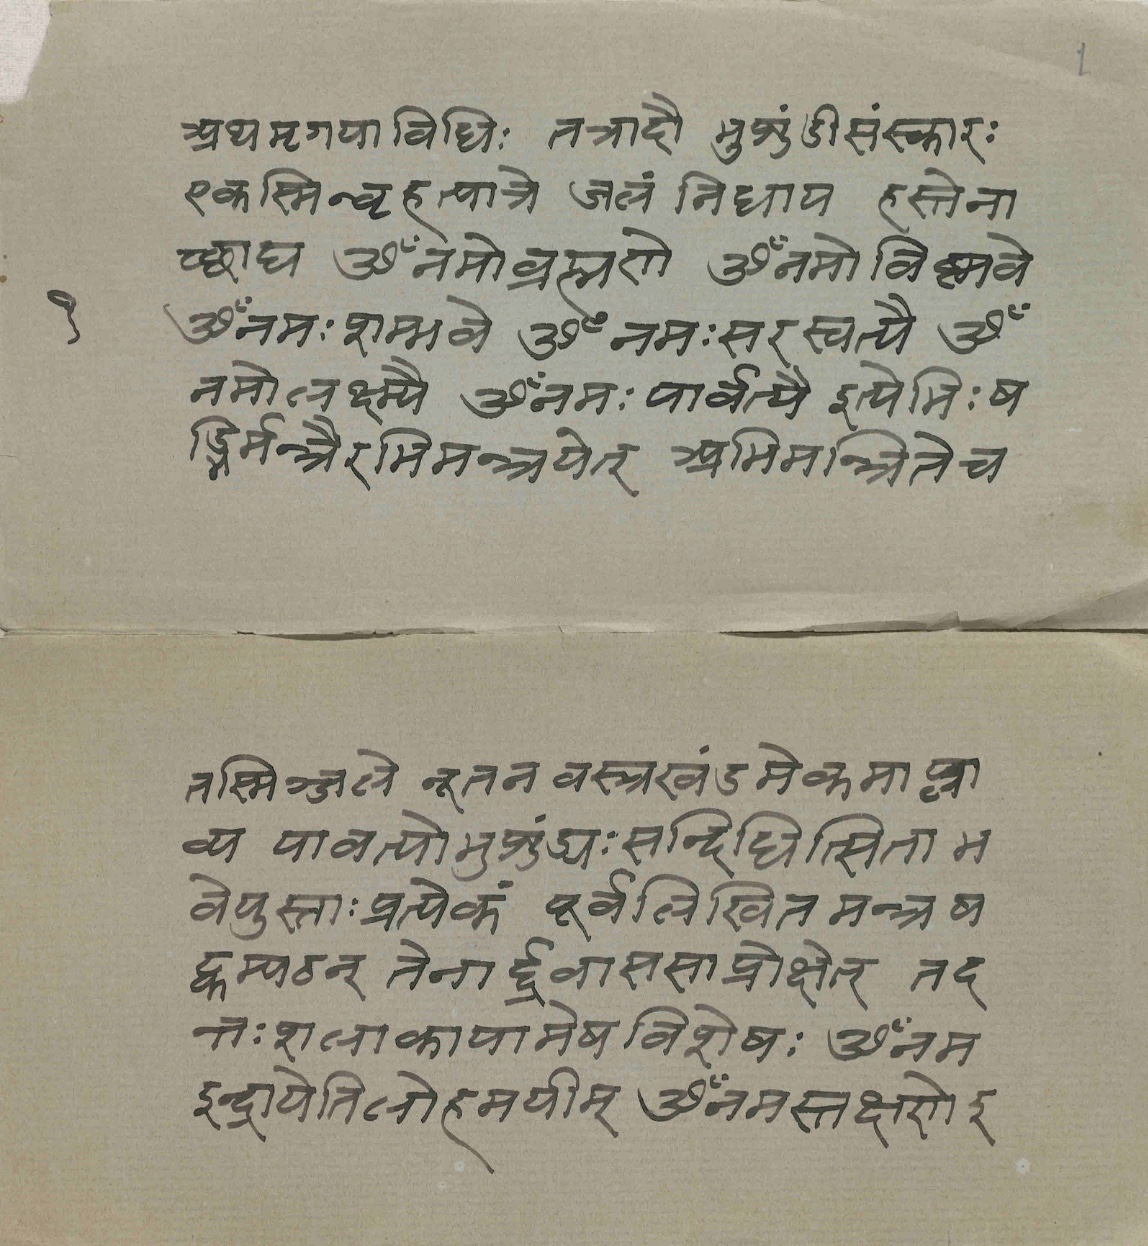 1
अथ मृगयाविधिः तत्रादौ भुशुंडीसंस्कारः
एकस्मिन्बृहत्पात्रे जलं निधाय हस्तेना
च्छाद्य ॐनमोब्रह्मणे ॐनमोविष्णवे
१
ॐनमःशम्भवे ॐ नमःसरस्वत्यै ॐ
नमोलक्ष्म्यै ॐनमःपार्वत्यै इत्येभिःष
ड्भिर्मन्त्रैरभिमन्त्रयेत् अभिमन्त्रितेच
तस्मिञ्जले नूतन वस्त्रखंडमेकमाप्ला
व्य यावत्योभुशुंड्यःसन्दिधित्सिता भ
वेयुस्ताःप्रत्येकं पूर्वलिखितमन्त्रष
ट्कम्पठन् तेनार्द्रवाससाप्रोक्षेत् तद
न्तःशलाकायामेषविशेषः ॐनम
इन्द्रायेतिलोहमयीम् ॐनमस्तक्षणेइ